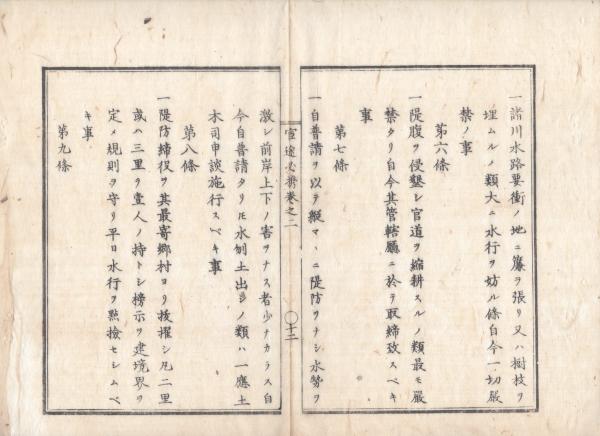 一諸川水路要衝ノ地ニ簾ヲ張リ又ハ樹枝ヲ
埋ムルノ類大ニ水行ヲ妨ル條自今一切嚴
禁ノ事
第六條
一隄腹ヲ侵墾シ官道ヲ縮耕スルノ類最モ嚴
禁タリ自今其管轄廳ニ於テ取締致スベキ
事
第七條
一自普請ヲ以テ擬マヽニ隄防ヲナシ水勢ヲ
官途必携卷之二
〇十二
激シ前岸上下ノ害ヲナス者少ナカラス自
今自普請タリ𪜈水刎土出シノ類ハ一應土
木司申談施行スベキ事
第八條
一隄防締役ヲ其最寄鄉村ヨリ拔擢シ凡二里
或ハ三里ヲ壹人ノ持トシ榜示ヲ建境界ヲ
定メ規則ヲ守リ平日水行ヲ點撿セシムベ
キ事
第九條